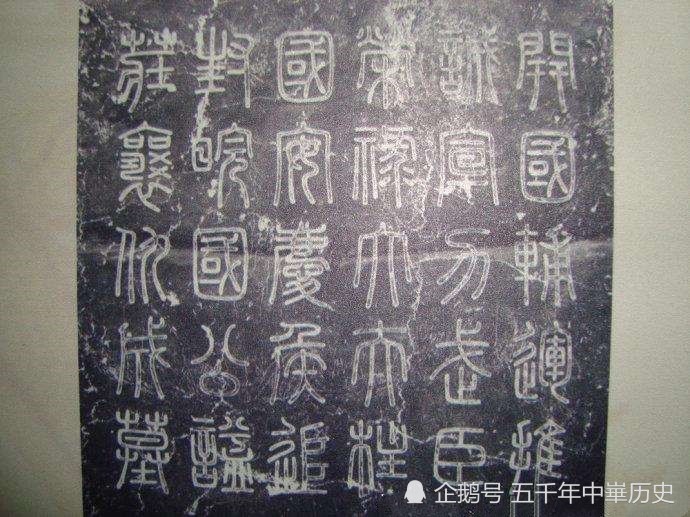 開國輔運推
誠宣力武臣
榮祿大夫柱
國安慶侯追
封皖國公謚
莊襄仇成墓
企鹅号 五千年中崋历史